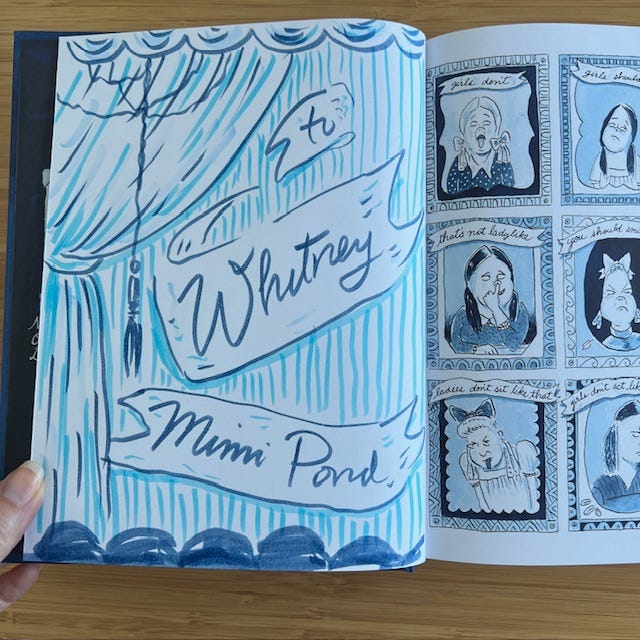 to
Whitney
Mimi Pond.
girls don't
girls should
that's not ladylike
you should smi
ladies don't sit like that
girls don't act li